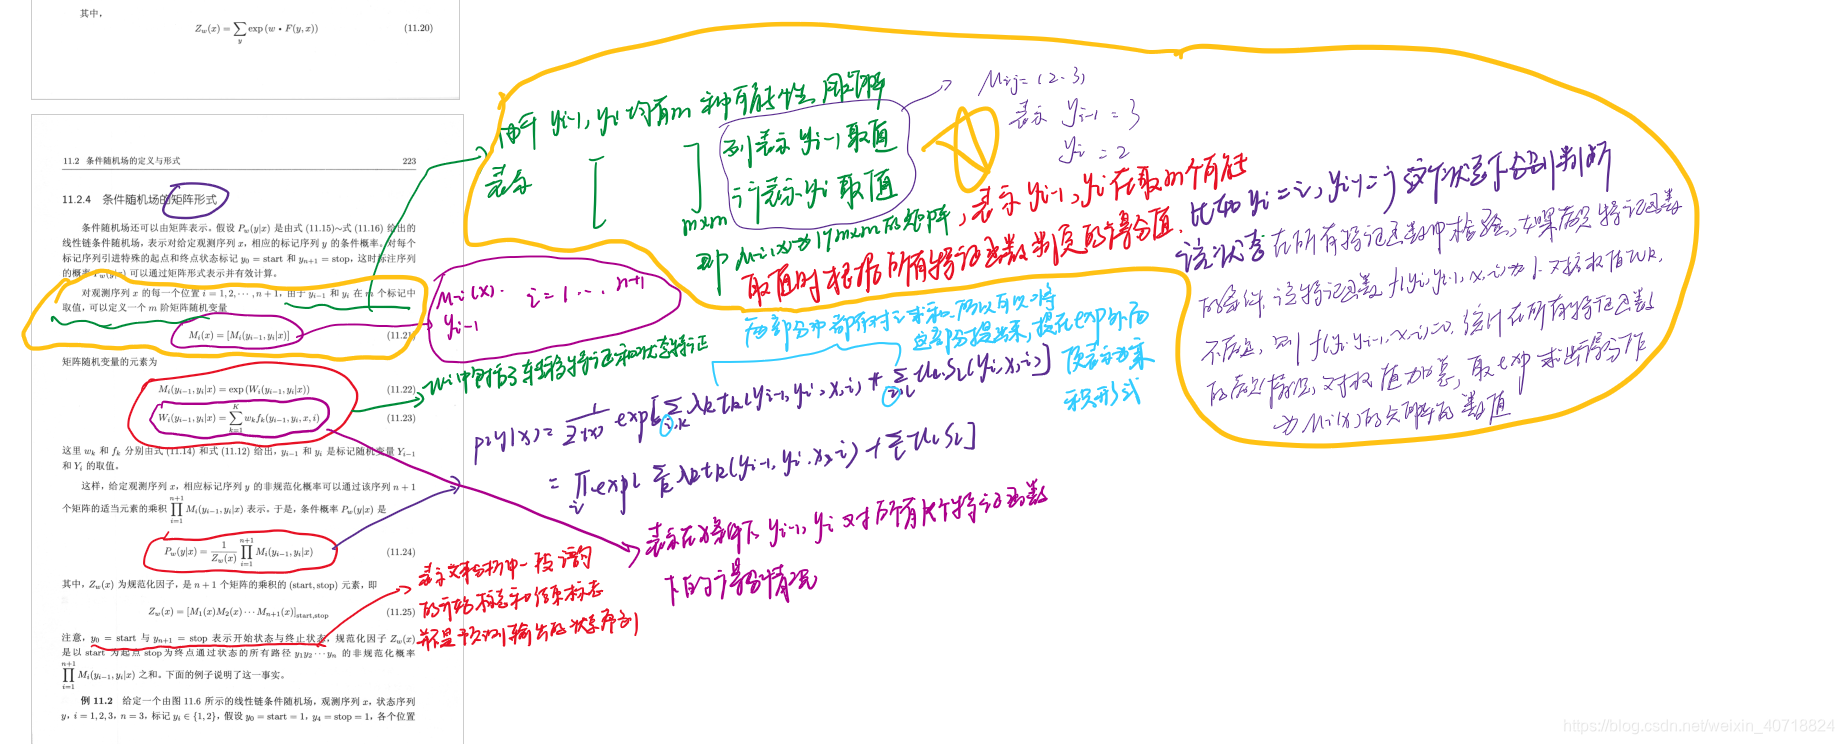 其中，
Z_w(x) = ∑_y exp(w • F(y, x)) (11.20)
11.2 条件随机场的定义与形式 223
11.2.4 条件随机场的矩阵形式
条件随机场还可以由矩阵表示。假设 P_w(y|x) 是由式 (11.15)~式 (11.16) 给出的
线性链条件随机场，表示对给定观测序列 x，相应的标记序列 y 的条件概率。对每个
标记序列引进特殊的起点和终点状态标记 y_0 = start 和 y_{n+1} = stop，这时标注序列
的概率 P_w(y|x) 可以通过矩阵形式表示并有效计算。
对观测序列 x 的每一个位置 i = 1, 2, ⋯, n+1，由于 y_{i-1} 和 y_i 在 m 个标记中
取值，可以定义一个 m 阶矩阵随机变量
M_i(x) = [M_i(y_{i-1}, y_i|x)] (11.21)
矩阵随机变量的元素为
M_i(y_{i-1}, y_i|x) = exp(W_i(y_{i-1}, y_i|x)) (11.22)
W_i(y_{i-1}, y_i|x) = ∑_{k=1}^{K} w_k f_k(y_{i-1}, y_i, x, i) (11.23)
这里 w_k 和 f_k 分别由式 (11.14) 和式 (11.12) 给出，y_{i-1} 和 y_i 是标记随机变量 Y_{i-1}
和 Y_i 的取值。
这样，给定观测序列 x，相应标记序列 y 的非规范化概率可以通过该序列 n+1
个矩阵的适当元素的乘积 ∏_{i=1}^{n+1} M_i(y_{i-1}, y_i|x) 表示。于是，条件概率 P_w(y|x) 是
P_w(y|x) = 1/Z_w(x) ∏_{i=1}^{n+1} M_i(y_{i-1}, y_i|x) (11.24)
其中，Z_w(x) 为规范化因子，是 n+1 个矩阵的乘积的 (start, stop) 元素，即
Z_w(x) = [M_1(x)M_2(x)⋯M_{n+1}(x)]_{start,stop} (11.25)
注意，y_0 = start 与 y_{n+1} = stop 表示开始状态与终止状态，规范化因子 Z_w(x)
是以 start 为起点 stop 为终点通过状态的所有路径 y_1y_2⋯y_n 的非规范化概率
∏_{i=1}^{n+1} M_i(y_{i-1}, y_i|x) 之和。下面的例子说明了这一事实。
例 11.2 给定一个由图 11.6 所示的线性链条件随机场，观测序列 x，状态序列
y，i = 1, 2, 3，n = 3，标记 y_i ∈ {1, 2}，假设 y_0 = start = 1，y_4 = stop = 1，各个位置
由于 y_{i-1}, y_i 均有m种可能性,用矩阵
表示 [ ]_{m×m}
列表示 y_{i-1} 取值
行表示 y_i 取值
M_{ij} = (2, 3)
表示 y_{i-1} = 3
y_i = 2
即 M_i(x)为1个m×m的矩阵, 表示 y_{i-1}, y_i 在取m个可能
取值时根据所有特征函数判定的得分值.
比如 y_i = i, y_{i-1} = j 这个状态下会判断
该状态在所有特征函数中检验,如果满足特征函数
的条件,该特征函数 f(y_i, y_{i-1}, x, i)为1.对应权值w_k,
不满足,则 f(y_i, y_{i-1}, x, i)=0,统计在所有特征函数
的满足情况,对权值加总,取exp求出得分作
为M_i(x)的矩阵的数值
M_i(x). i = 1 … n+1
y_{i-1}
W_i中包括了转移特征和状态特征
两部分中都有对i求和,所以可以将
这部分提出来,提在exp外面
使表示为乘
积形式
P(y|x) = 1/Z(x) exp[∑_{i,k} λ_k t_k(y_{i-1}, y_i, x, i) + ∑_{i,l} u_l s_l(y_i, x, i)]
= ∏_i exp[∑_k λ_k t_k(y_{i-1}, y_i, x, i) + ∑_l u_l s_l]
表示在x条件下 y_{i-1}, y_i 对所有K个特征函数
下的得分情况
表示文本分析中一段话的
的开始标志和结束标志
都是预测输出的状态序列
https://blog.csdn.net/weixin_40718824